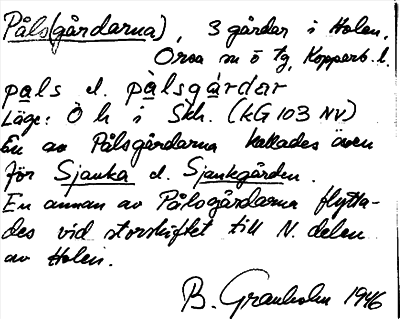 Påls(gårdarna), 3 gårdar i Holen,
Orsa sn ö tg, Kopparb. l.
pals el. pàlsgárdar
Läge: Ö h i Skh. (KG 103 NV)
En av Pålsgårdarna kallades även
för Sjauka el. Sjaukgården.
En annan av Pålsgårdarna flytta-
des vid storskiftet till N. delen
av Holen.
B. Granholm 1946